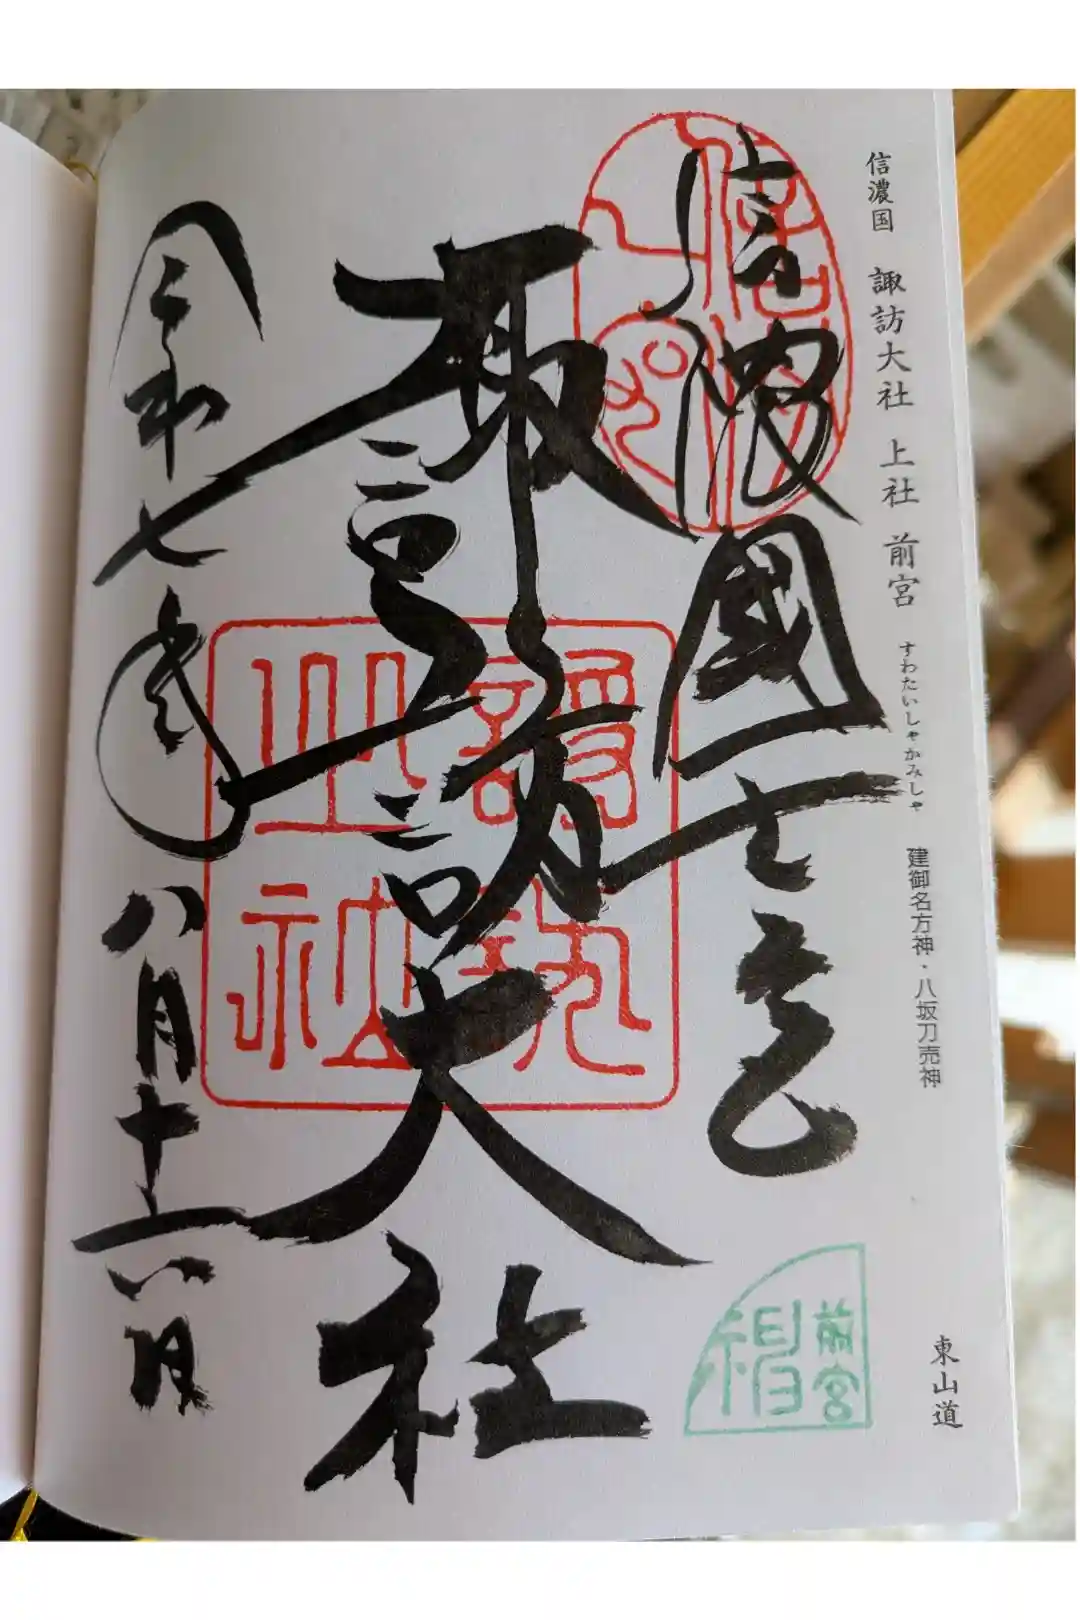 信濃国 諏訪大社 上社 前宮 すわたいしゃかみしゃ 建御名方神・八坂刀売神 東山道
信濃國一之宮
前宮
諏訪大社
令和七年八月十六日